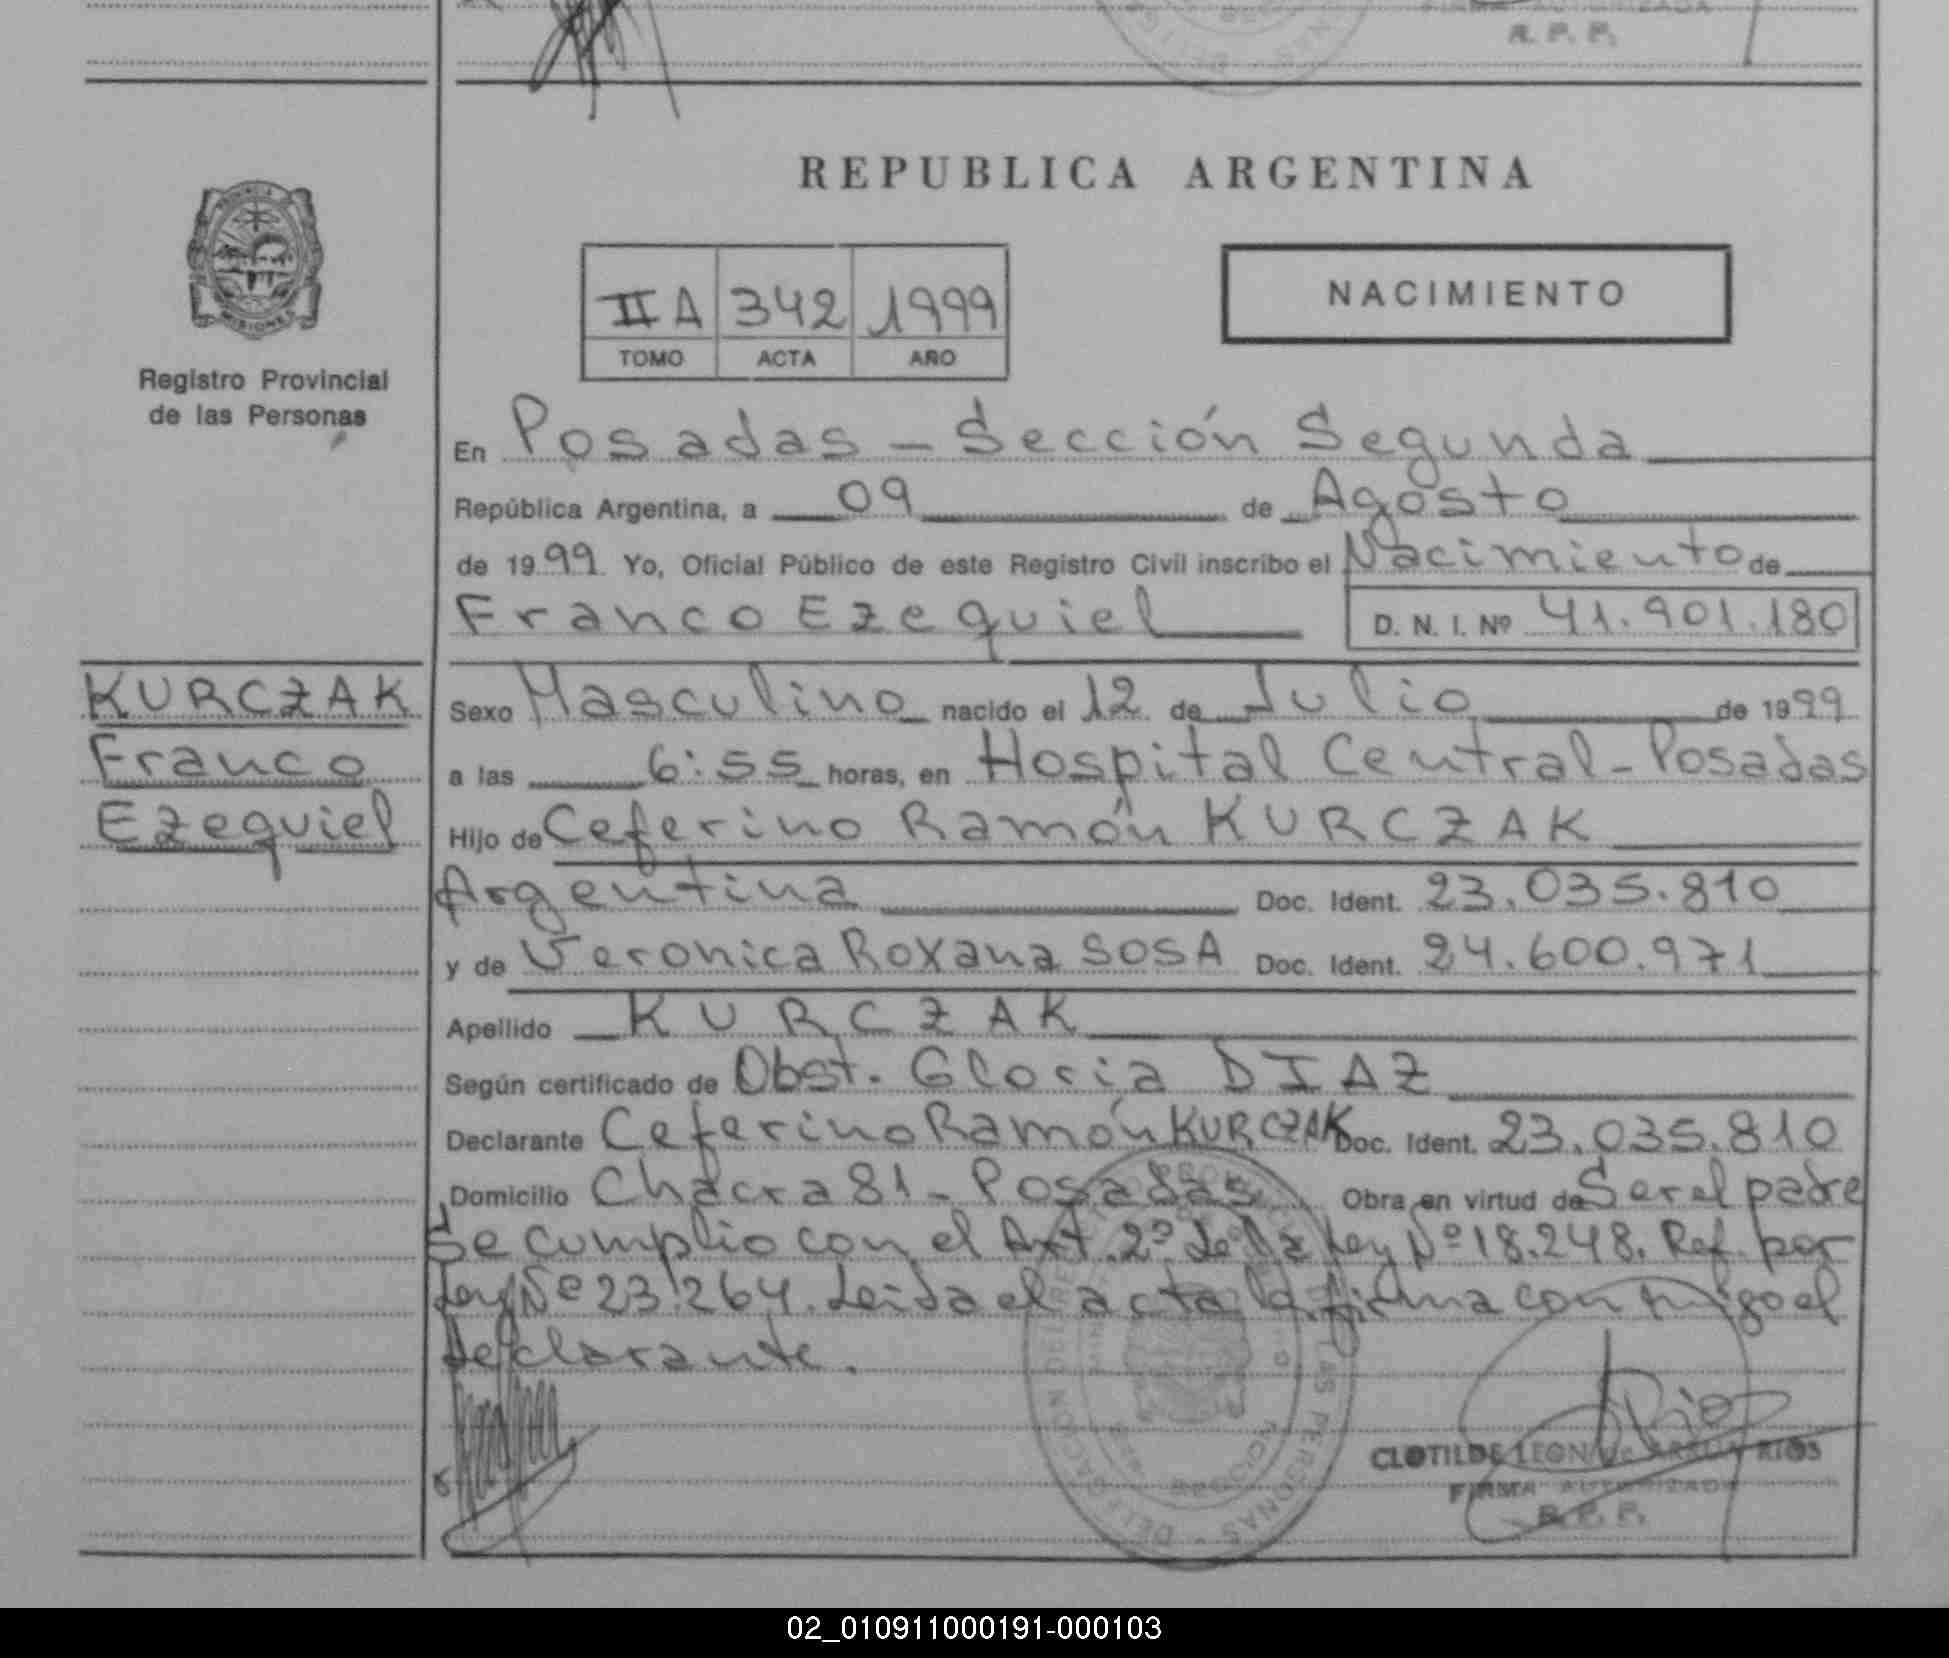 FIRMA AUTORIZADA
R. P. P.
REPUBLICA ARGENTINA
PROVINCIA
MISIONES
Registro Provincial
de las Personas
II A 342 1999
TOMO ACTA AÑO
NACIMIENTO
En Posadas - Sección Segunda
República Argentina, a 09 de Agosto
de 1999 Yo, Oficial Público de este Registro Civil inscribo el Nacimiento de
Franco Ezequiel D. N. I. Nº 41.901.180
KURCZAK
Franco
Ezequiel
Sexo Masculino nacido el 12 de Julio de 1999
a las 6:55 horas, en Hospital Central - Posadas
Hijo de Ceferino Ramón KURCZAK
Argentina Doc. Ident. 23.035.810
y de Veronica Roxana SOSA Doc. Ident. 24.600.971
Apellido KURCZAK
Según certificado de Obst. Gloria DIAZ
Declarante Ceferino Ramón KURCZAK Doc. Ident. 23.035.810
Domicilio Chacra 81 - Posadas Obra en virtud de Ser el padre
Se cumplio con el Art. 2º de la Ley Nº 18.248. Ref. por
Ley Nº 23.264. Leida el acta la firma con migo el
declarante.
Rios
CLOTILDE LEON de RIOS
FIRMA AUTORIZADA
R. P. P.
02_010911000191-000103